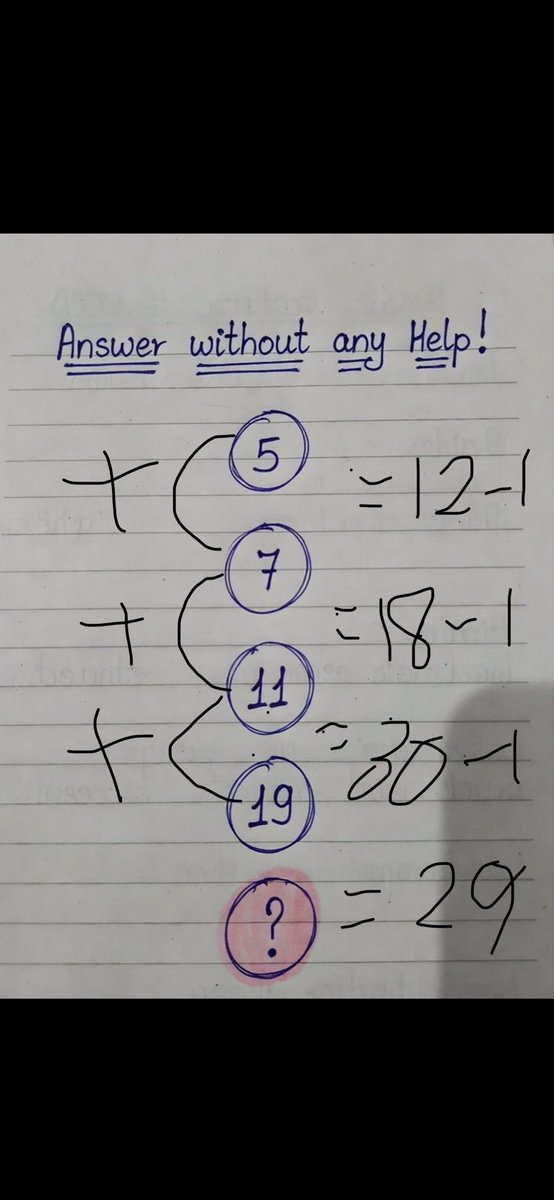 Answer without any Help!
5
+ =12-1
7
+ =18-1
11
+ =30-1
19
? =29